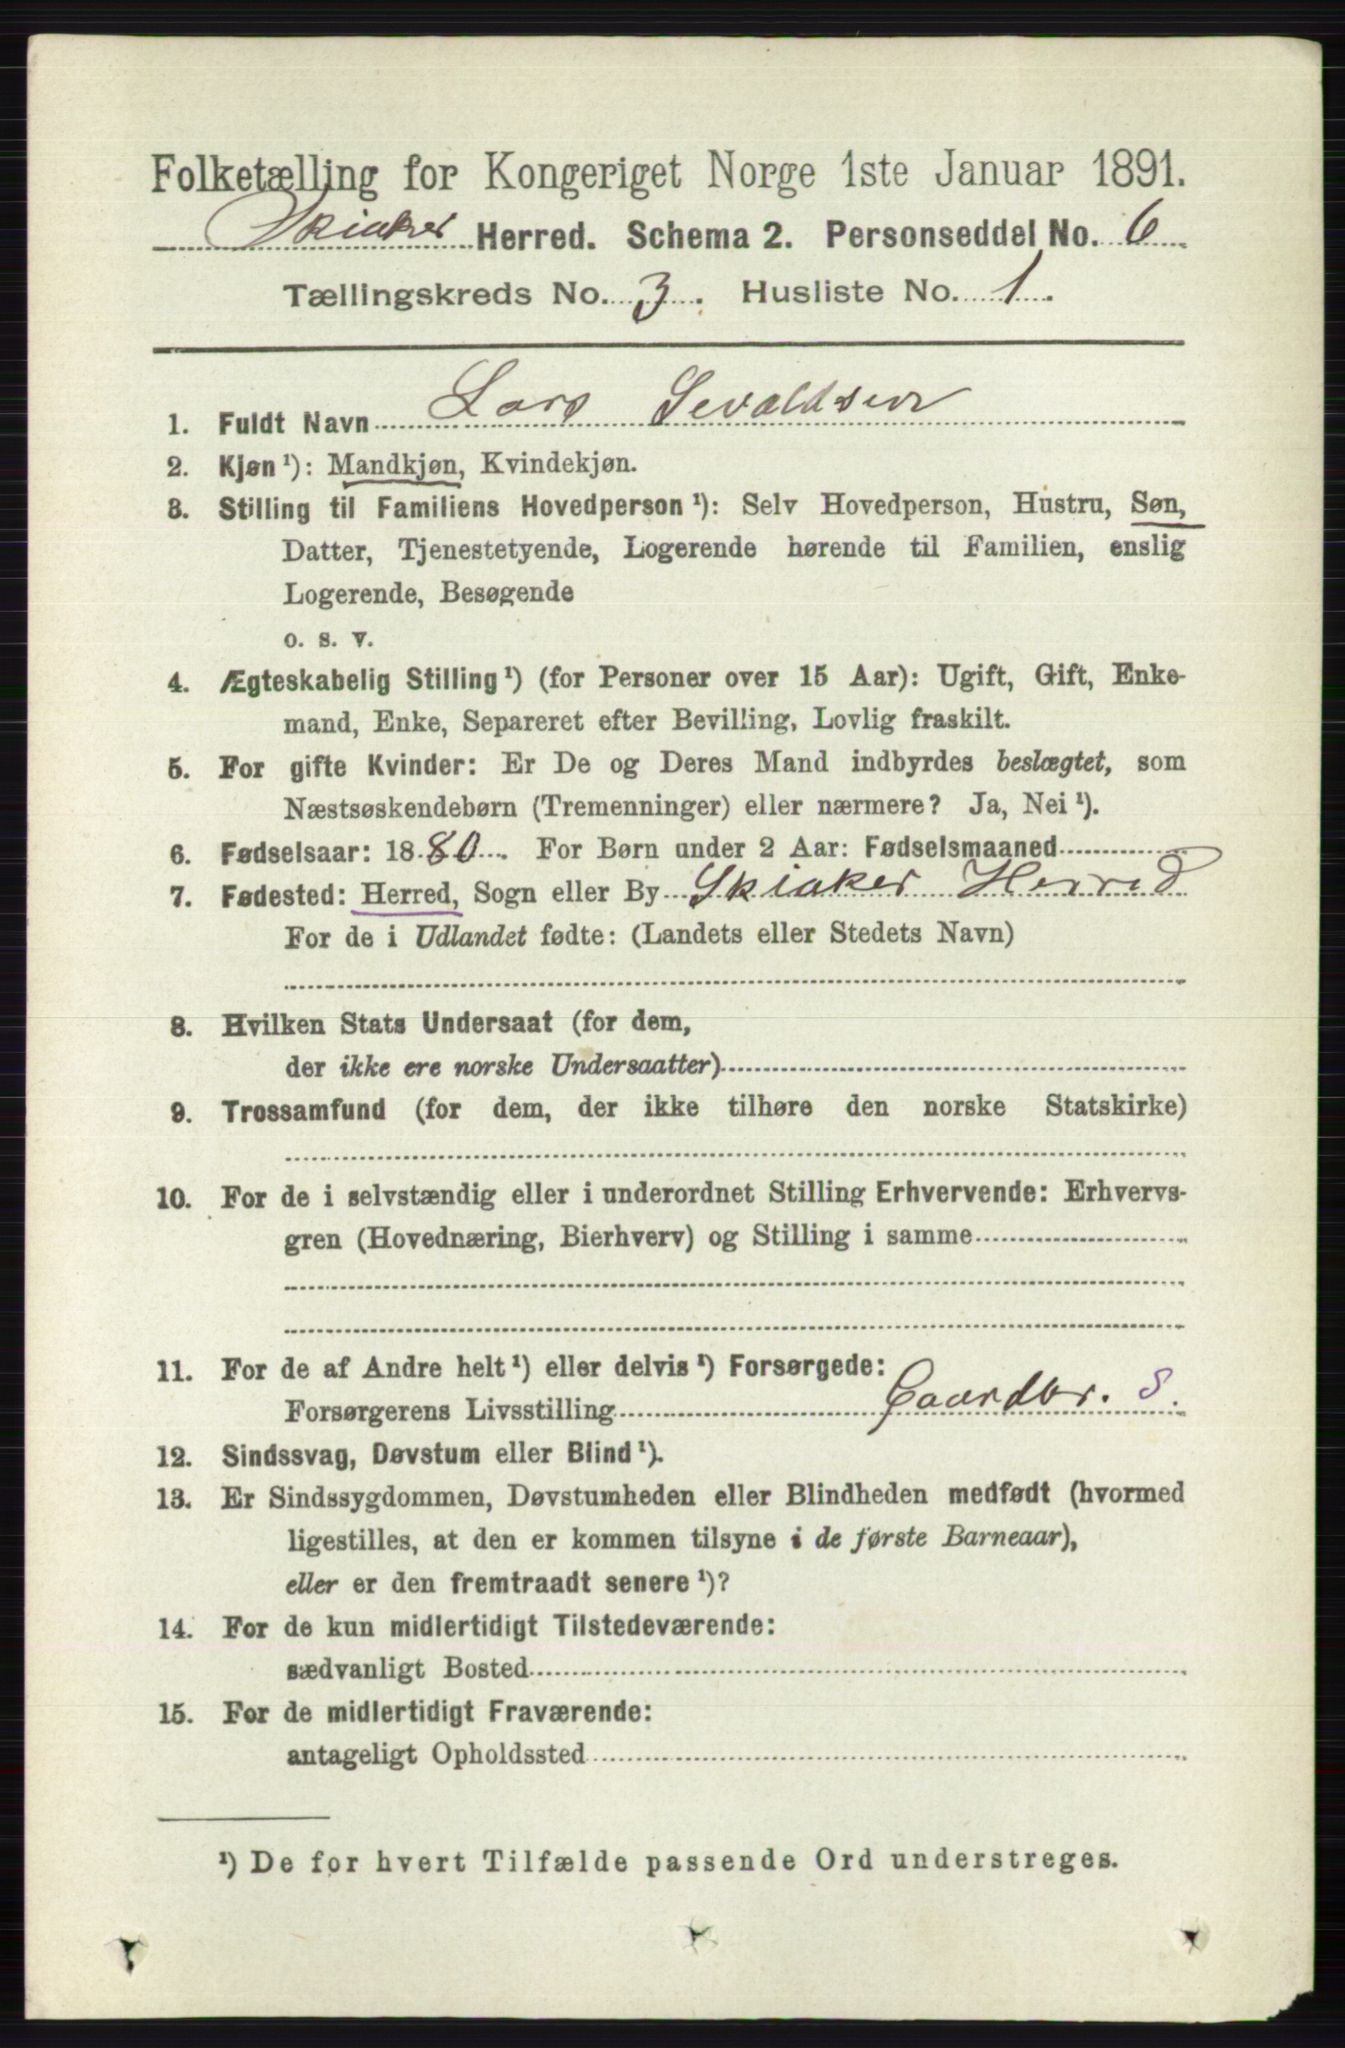 Folketælling for Kongeriget Norge 1ste Januar 1891.
Skiaker Herred. Schema 2. Personseddel No. 6
Tællingskreds No. 3. Husliste No. 1.
1. Fuldt Navn Lars Sevaldsen
2. Kjøn ¹): Mandkjøn, Kvindekjøn.
3. Stilling til Familiens Hovedperson ¹): Selv Hovedperson, Hustru, Søn,
Datter, Tjenestetyende, Logerende hørende til Familien, enslig
Logerende, Besøgende
o. s. v.
4. Ægteskabelig Stilling ¹) (for Personer over 15 Aar): Ugift, Gift, Enke-
mand, Enke, Separeret efter Bevilling, Lovlig fraskilt.
5. For gifte Kvinder: Er De og Deres Mand indbyrdes beslægtet, som
Næstsøskendebørn (Tremenninger) eller nærmere? Ja, Nei ¹).
6. Fødselsaar: 1880. For Børn under 2 Aar: Fødselsmaaned
7. Fødested: Herred, Sogn eller By Skiaker Herred
For de i Udlandet fødte: (Landets eller Stedets Navn)
8. Hvilken Stats Undersaat (for dem,
der ikke ere norske Undersaatter)
9. Trossamfund (for dem, der ikke tilhøre den norske Statskirke)
10. For de i selvstændig eller i underordnet Stilling Erhvervende: Erhvervs-
gren (Hovednæring, Bierhverv) og Stilling i samme
11. For de af Andre helt ¹) eller delvis ¹) Forsørgede:
Forsørgerens Livsstilling Gaardbr. S.
12. Sindssvag, Døvstum eller Blind ¹).
13. Er Sindssygdommen, Døvstumheden eller Blindheden medfødt (hvormed
ligestilles, at den er kommen tilsyne i de første Barneaar),
eller er den fremtraadt senere ¹)?
14. For de kun midlertidigt Tilstedeværende:
sædvanligt Bosted
15. For de midlertidigt Fraværende:
antageligt Opholdssted
¹) De for hvert Tilfælde passende Ord understreges.